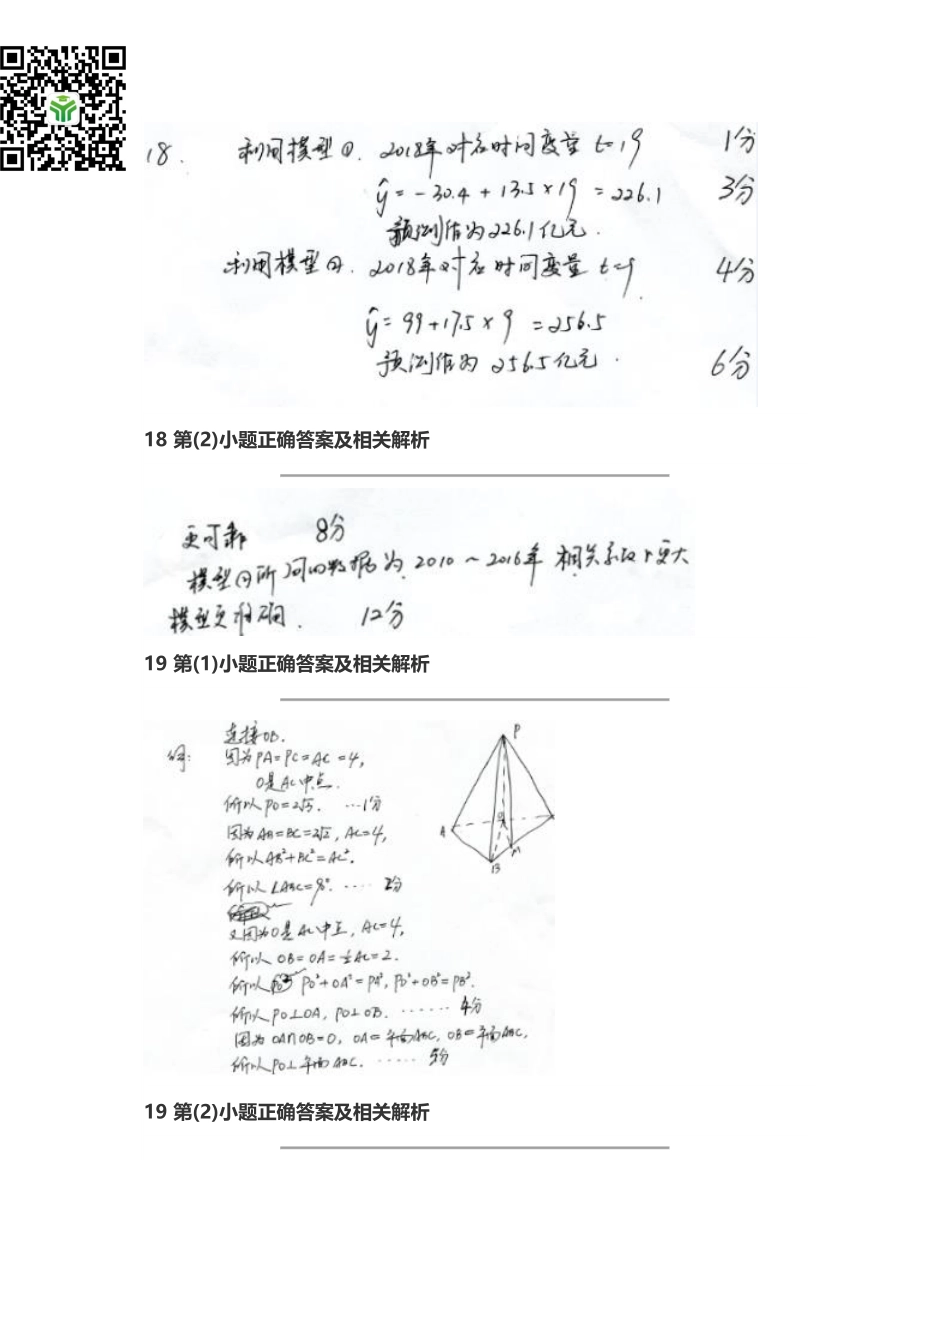 18. 利用模型①. 2018年对应时间变量 t=19 1分
ŷ=-30.4+13.5×19=226.1 3分
预测值为226.1亿元.
利用模型②. 2018年对应时间变量 t=9 4分
ŷ=99+17.5×9=256.5
预测值为256.5亿元. 6分
18 第(2)小题正确答案及相关解析
更可靠 8分
模型②所问的数据为 2010~2016年 相关系数r更大
模型更准确. 12分
19 第(1)小题正确答案及相关解析
连接OB.
解: 因为PA=PC=AC=4,
O是AC中点.
所以PO=2√3. …1分
因为AB=BC=2√2, AC=4,
所以AB²+BC²=AC².
所以∠ABC=90°. …… 2分
又因为O是AC中点, AC=4,
所以 OB=OA=½AC=2.
所以 PO²+OA²=PA², PO²+OB²=PB².
所以PO⊥OA, PO⊥OB. …… 4分
因为 OA∩OB=O, OA⊂平面ABC, OB⊂平面ABC,
所以PO⊥平面ABC. …… 5分
P
O
A
M
B
19 第(2)小题正确答案及相关解析